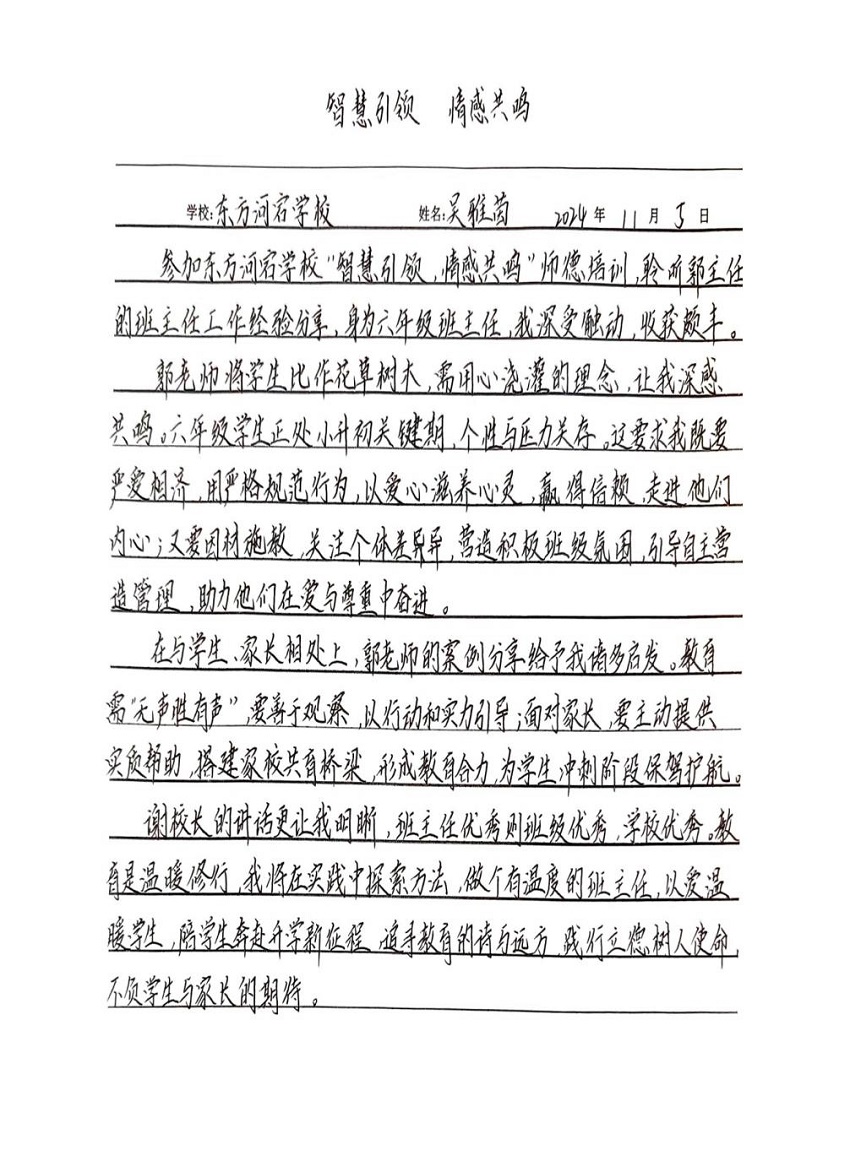 智慧引领 情感共鸣
学校:东方河宕学校 姓名:吴雅茵 2024年11月5日
参加东方河宕学校“智慧引领,情感共鸣”师德培训,聆听郭主任
的班主任工作经验分享,身为六年级班主任,我深受触动,收获颇丰。
郭老师将学生比作花草树木,需用心浇灌的理念,让我深感
共鸣。六年级学生正处小升初关键期,个性与压力关存。这要求我既要
严爱相济,用严格规范行为,以爱心滋养心灵,赢得信赖,走进他们
内心;又要因材施教,关注个体差异异,营造积极班级氛围,引导自主营
造管理,助力他们在爱与尊重中奋进。
在与学生、家长相处上,郭老师的案例分享给予我诸多启发。教育
需“无声胜有声”,要善于观察,以行动和实力引导;面对家长,要主动提供
实质帮助,搭建家校共育桥梁,形成教育合力,为学生冲刺阶段保驾护航。
谢校长的讲话更让我明晰,班主任优秀则班级优秀,学校优秀。教
育是温暖修行,我将在实践中探索方法,做个有温度的班主任,以爱温
暖学生,陪学生奔赴升学新征程,追寻教育的诗与远方,践行立德树人使命,
不负学生与家长的期待。